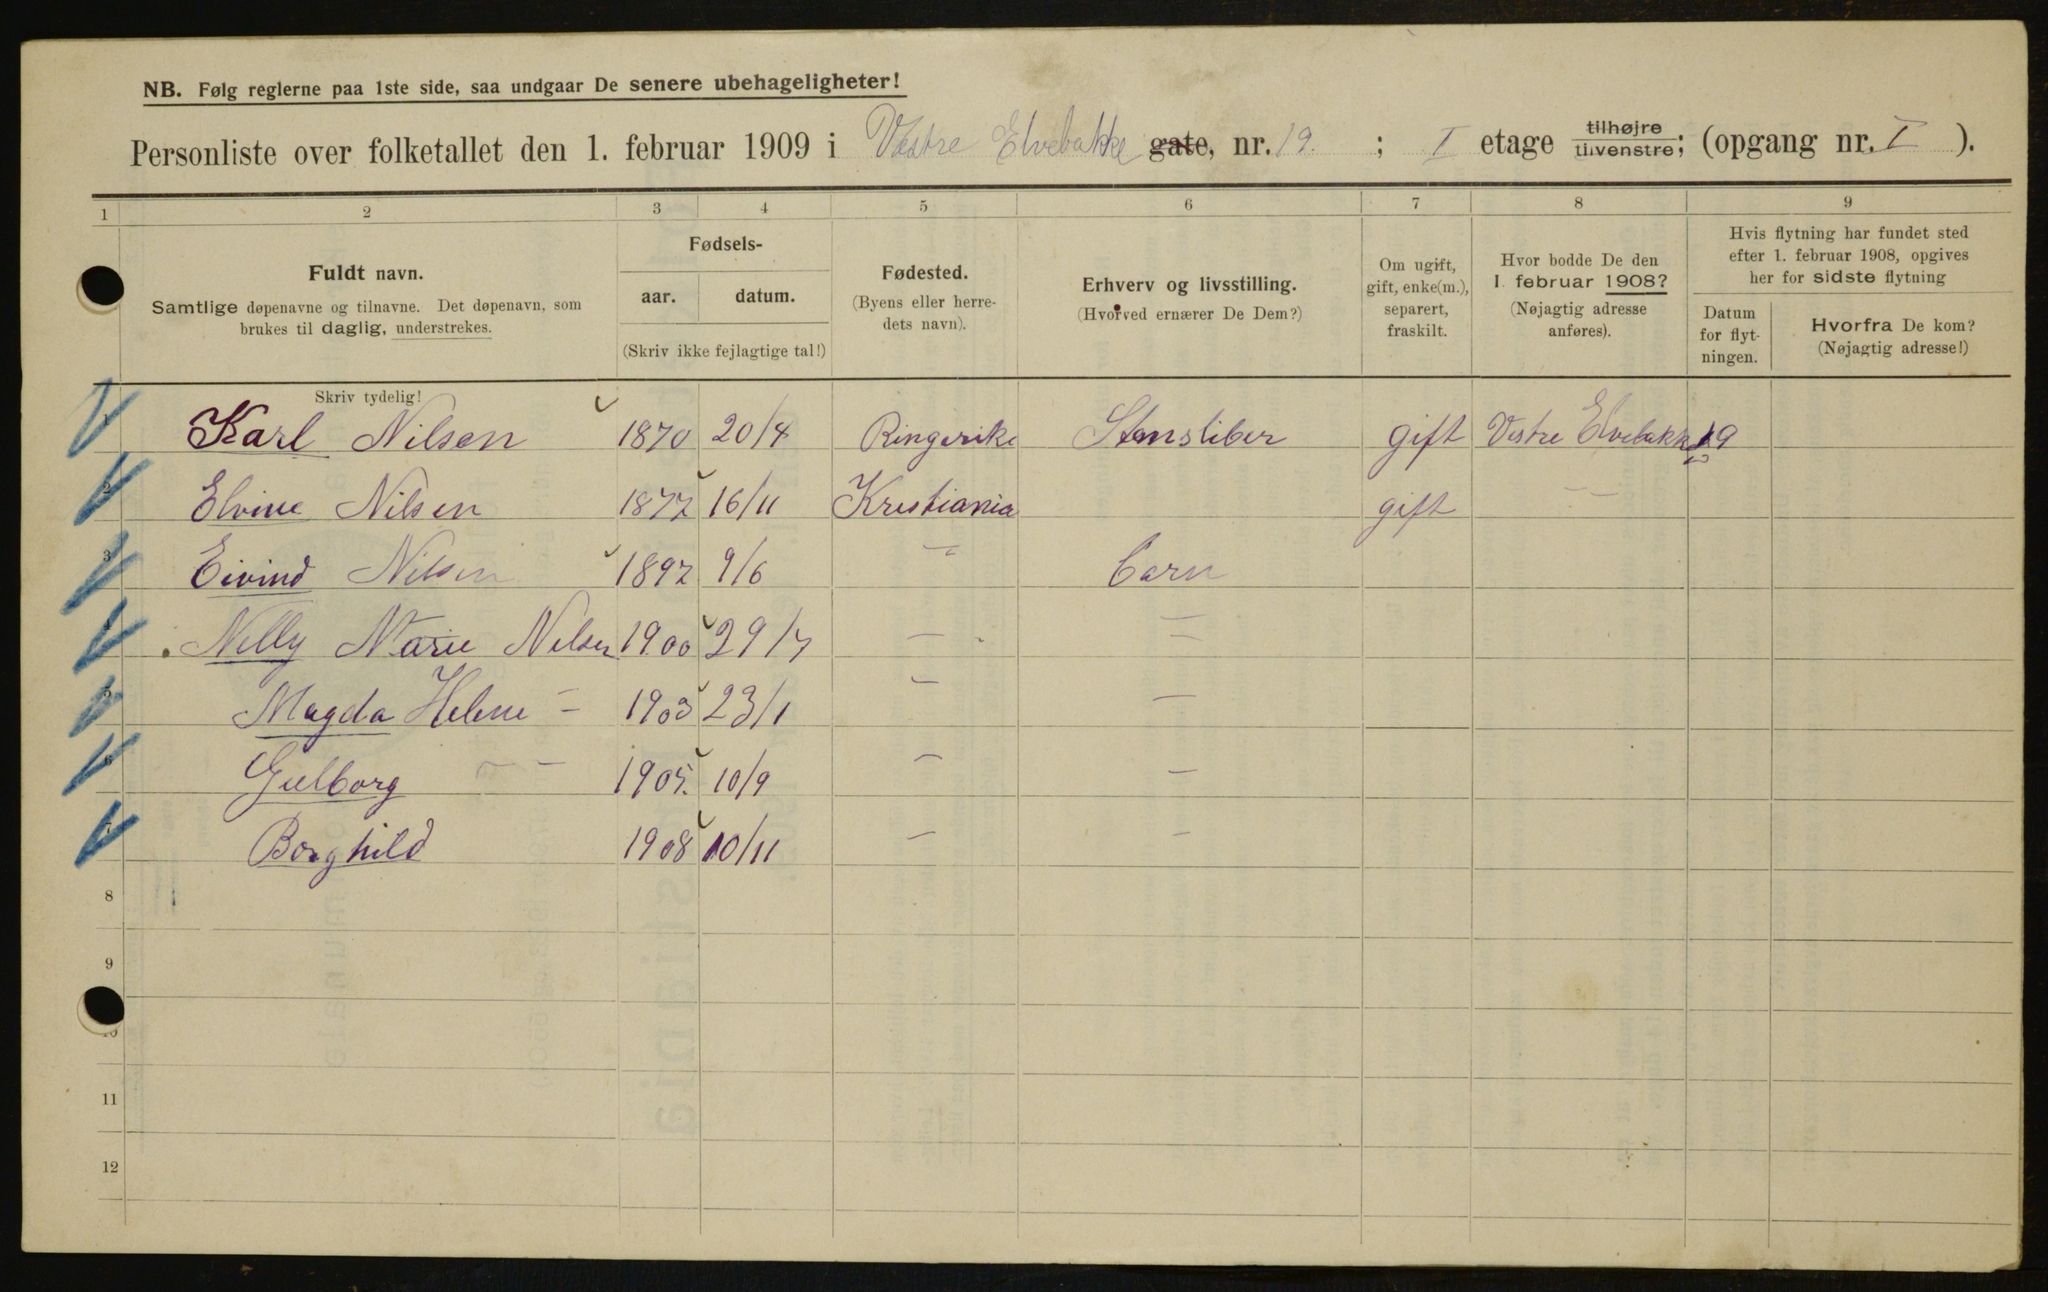 NB. Følg reglerne paa 1ste side, saa undgaar De senere ubehageligheter!
Personliste over folketallet den 1. februar 1909 i Vestre Elvebakke gate, nr. 19. ; I etage tilhøjre tilvenstre; (opgang nr. I ).
1 2 3 4 5 6 7 8 9
Fuldt navn.
Samtlige døpenavne og tilnavne. Det døpenavn, som
brukes til daglig, understrekes.
Fødsels-
aar. datum.
(Skriv ikke fejlagtige tal!)
Fødested.
(Byens eller herre-
dets navn).
Erhverv og livsstilling.
(Hvorved ernærer De Dem?)
Om ugift,
gift, enke(m.),
separert,
fraskilt.
Hvor bodde De den
1. februar 1908?
(Nøjagtig adresse
anføres).
Hvis flytning har fundet sted
efter 1. februar 1908, opgives
her for sidste flytning
Datum
for flyt-
ningen.
Hvorfra De kom?
(Nøjagtig adresse!)
Skriv tydelig!
1 Karl Nilsen 1870 20/4 Ringerike Stensliber gift Vestre Elvebakke 19
2 Elvine Nilsen 1877 16/11 Kristiania gift — —
3 Eivind Nilsen 1897 9/6 — Barn
4 Nelly Marie Nilsen 1900 29/7 — —
5 Magda Helene — 1903 23/1 — —
6 Gulborg — — 1905. 10/9 — —
7 Borghild 1908 10/11 — —
8
9
10
11
12